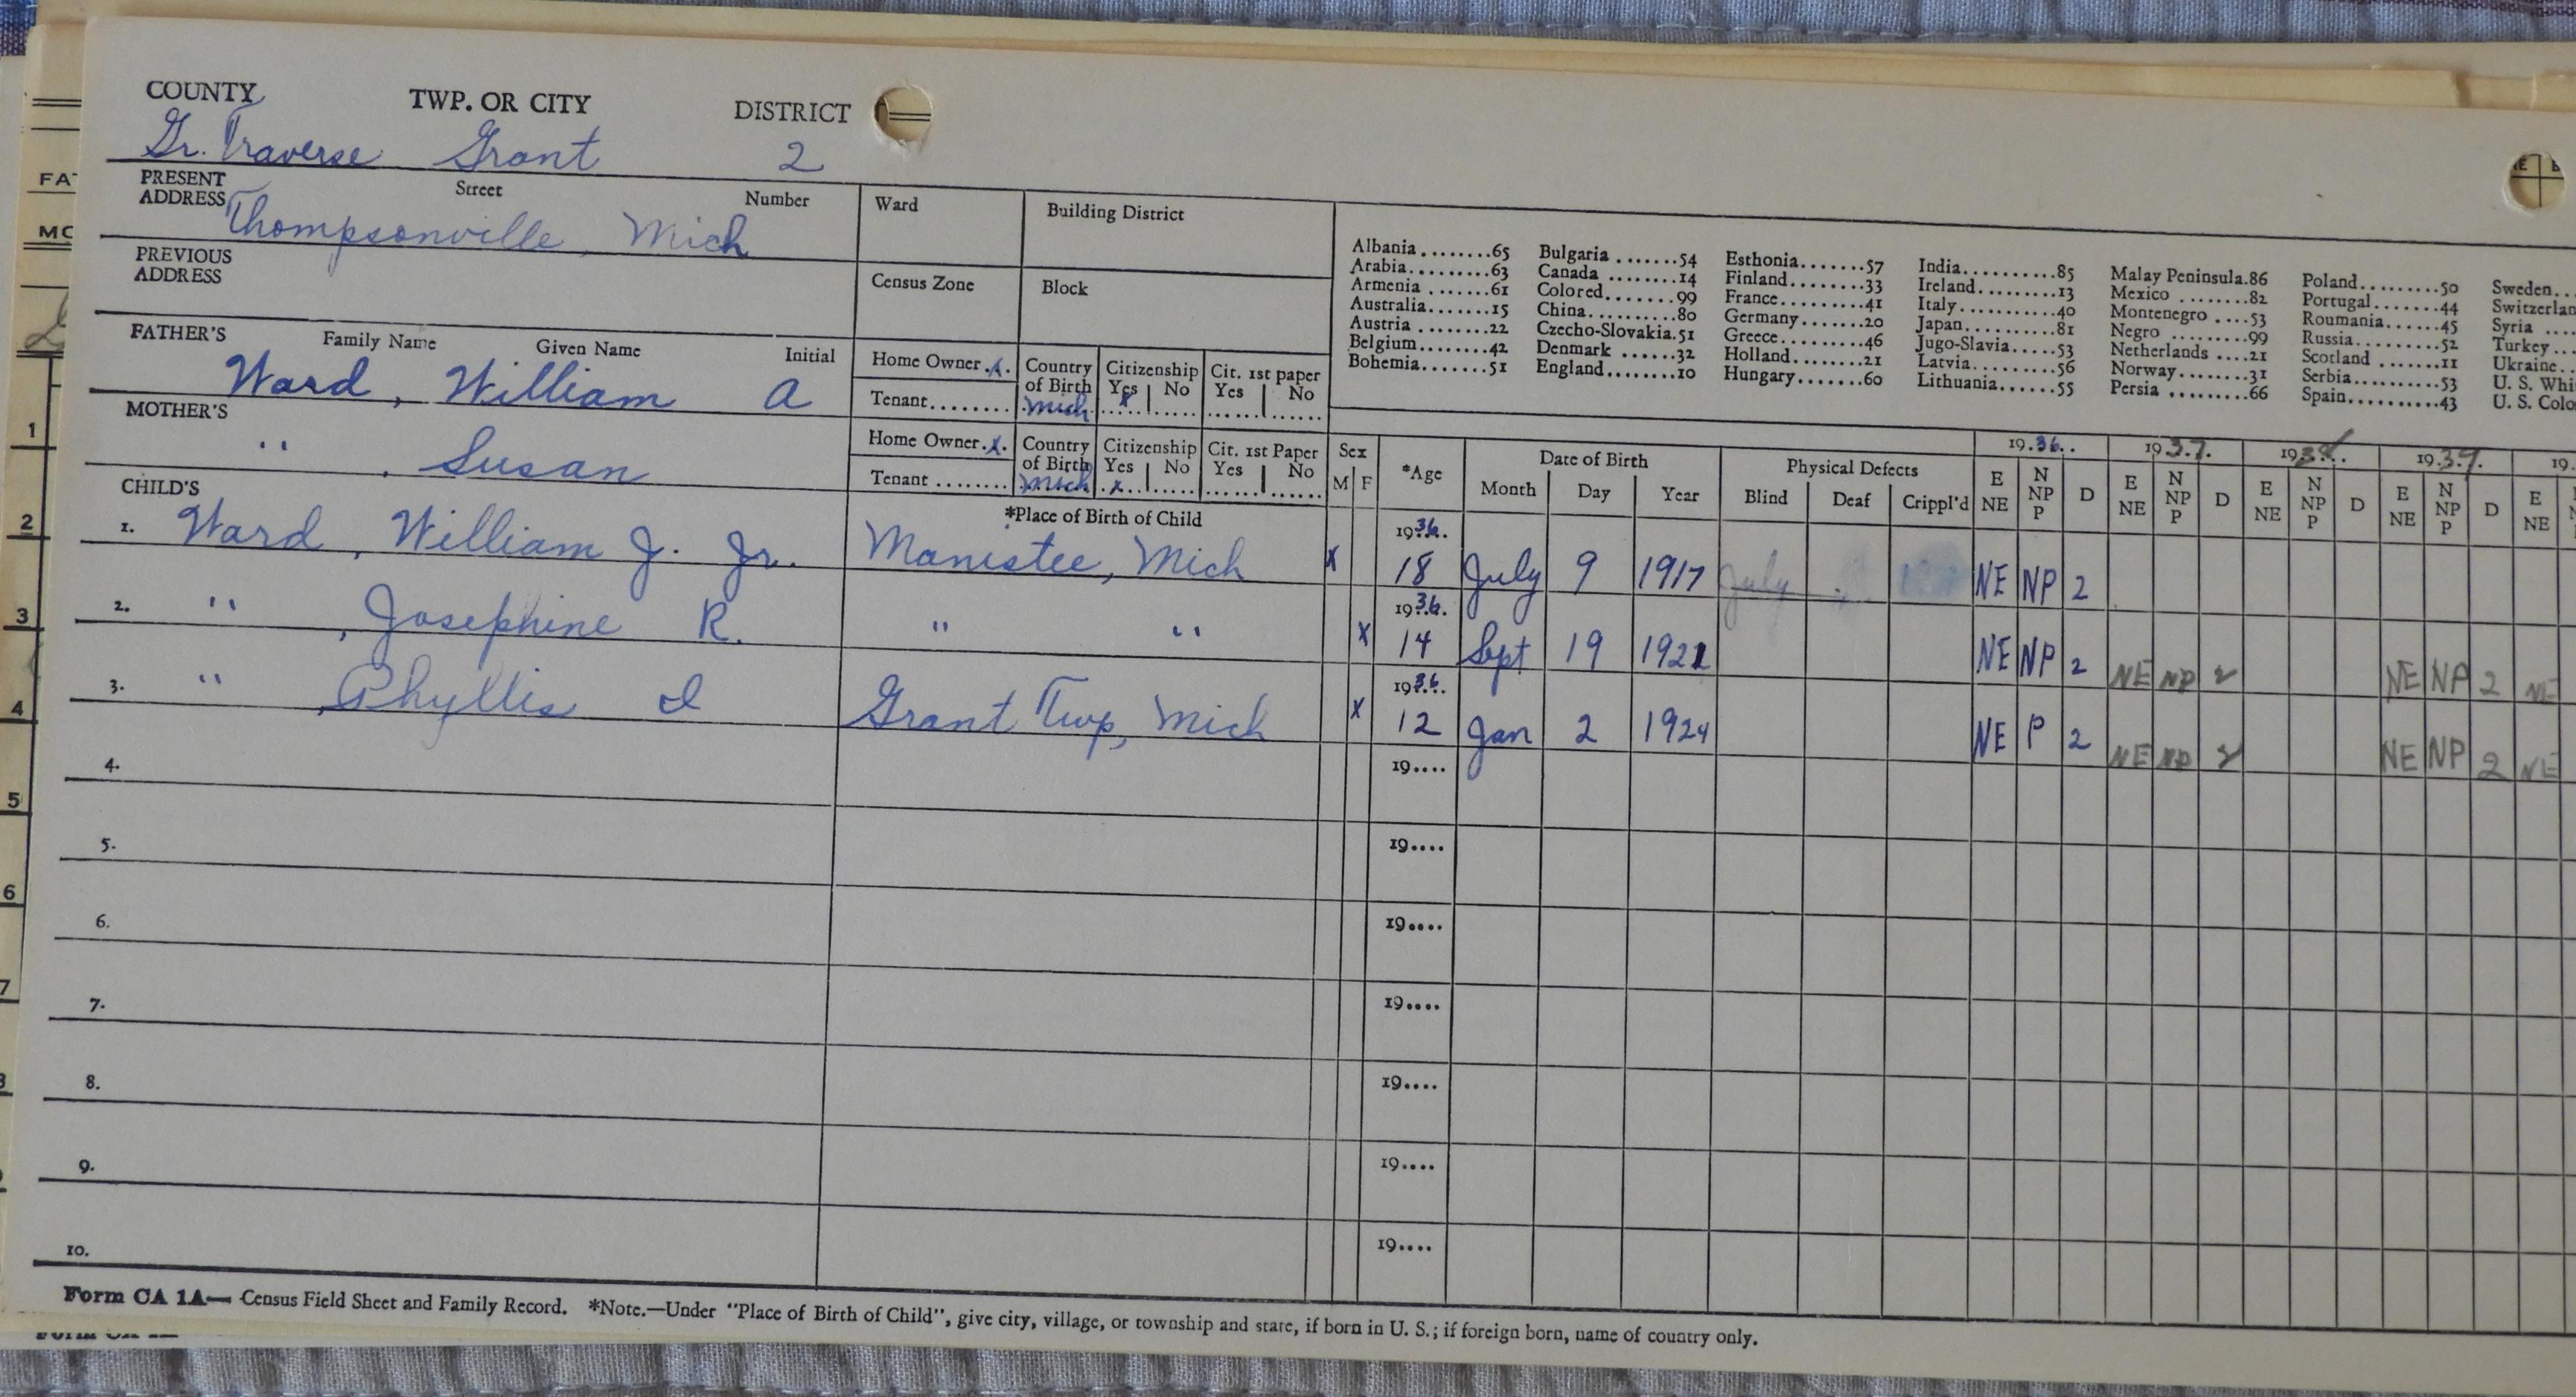 COUNTY TWP. OR CITY DISTRICT
Gr. Traverse Grant 2
PRESENT ADDRESS Street Number
Thompsonville, Mich
Ward Building District
PREVIOUS ADDRESS
Census Zone Block
FATHER'S Family Name Given Name Initial
Ward, William A
Home Owner.x. Country of Birth Citizenship Cit. 1st paper
Tenant........ Mich Yes x No Yes No
MOTHER'S
" , Susan
Home Owner.x. Country of Birth Citizenship Cit. 1st Paper
Tenant........ Mich Yes x No Yes No
Albania........65 Bulgaria.......54 Esthonia.......57 India..........85 Malay Peninsula.86 Poland.........50 Sweden..
Arabia.........63 Canada........14 Finland........33 Ireland.........13 Mexico........82 Portugal.......44 Switzerlan
Armenia.......61 Colored........99 France.........41 Italy...........40 Montenegro....53 Roumania......45 Syria....
Australia.......15 China..........80 Germany.......20 Japan..........81 Negro..........99 Russia.........52 Turkey...
Austria........22 Czecho-Slovakia.51 Greece.........46 Jugo-Slavia.....53 Netherlands....21 Scotland.......11 Ukraine..
Belgium.......42 Denmark......32 Holland........21 Latvia.........56 Norway........31 Serbia.........53 U. S. Whi
Bohemia.......51 England........10 Hungary.......60 Lithuania......55 Persia.........66 Spain..........43 U. S. Colo
CHILD'S *Place of Birth of Child
Sex *Age Date of Birth Physical Defects 19.36.. 19 37. 1938.. 19.39. 19.
M F Month Day Year Blind Deaf Crippl'd E NE N NP P D E NE N NP P D E NE N NP P D E NE N NP P D E NE
1. Ward, William J. Jr. Manistee, Mich x 1936. 18 July 9 1917 July NE NP 2
2. " , Josephine R. " " x 1936. 14 Sept 19 1921 NE NP 2 NE NP 2 NE NP 2 NE
3. " , Phyllis I Grant Twp, Mich x 1936. 12 Jan 2 1924 NE P 2 NE NP 2 NE NP 2 NE
4. 19....
5. 19....
6. 19....
7. 19....
8. 19....
9. 19....
10. 19....
Form CA 1A— Census Field Sheet and Family Record. *Note.—Under "Place of Birth of Child", give city, village, or township and state, if born in U. S.; if foreign born, name of country only.
FA
MO
1
2
3
4
5
6
7